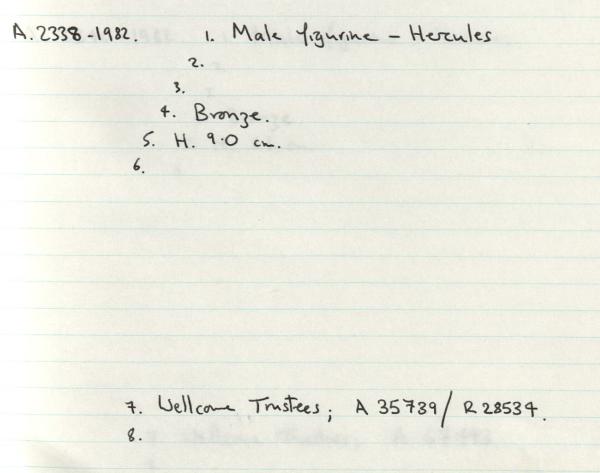 A.2338-1982. 1. Male figurine - Hercules
2.
3.
4. Bronze.
5. H. 9.0 cm.
6.
7. Wellcome Trustees; A 35739/ R 28534.
8.